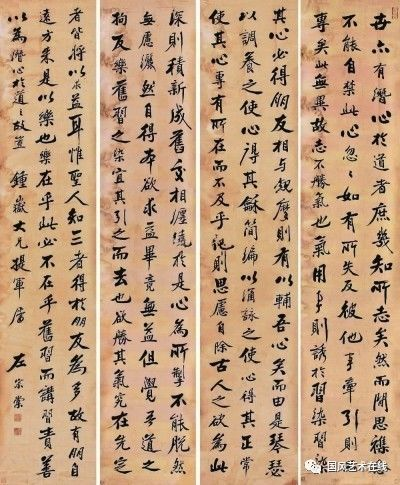 亦有潛心於道者庶幾知所志矣然而閒思襍
不能自禁此心忽忽如有所失及彼他事牽引則
專矣此無異故志不勝氣也氣用事則誘於習染習
其心必得朋友相與觀摩則有以輔吾心矣而由是琴瑟
以調養之使心得其龢間編以誦詠之使心得其正常
使其心專有所在而不及乎詭則思慮自除古人之欲為此
深則積新成舊交相纏繞於是心為所掣不能脫然
無慮灑然自得本欲求益畢竟無益但覺吾道之
拘反樂舊習之染宜其引之而去也欲勝其氣究在先定
者皆將以求益耳惟聖人知三者得於朋友為多故有朋自
遠方來是以樂也樂在乎此必不在乎舊習而講習責善
以為潛心於道之故 鍾嶽大兄提軍屬 左宗棠
国风艺术在线